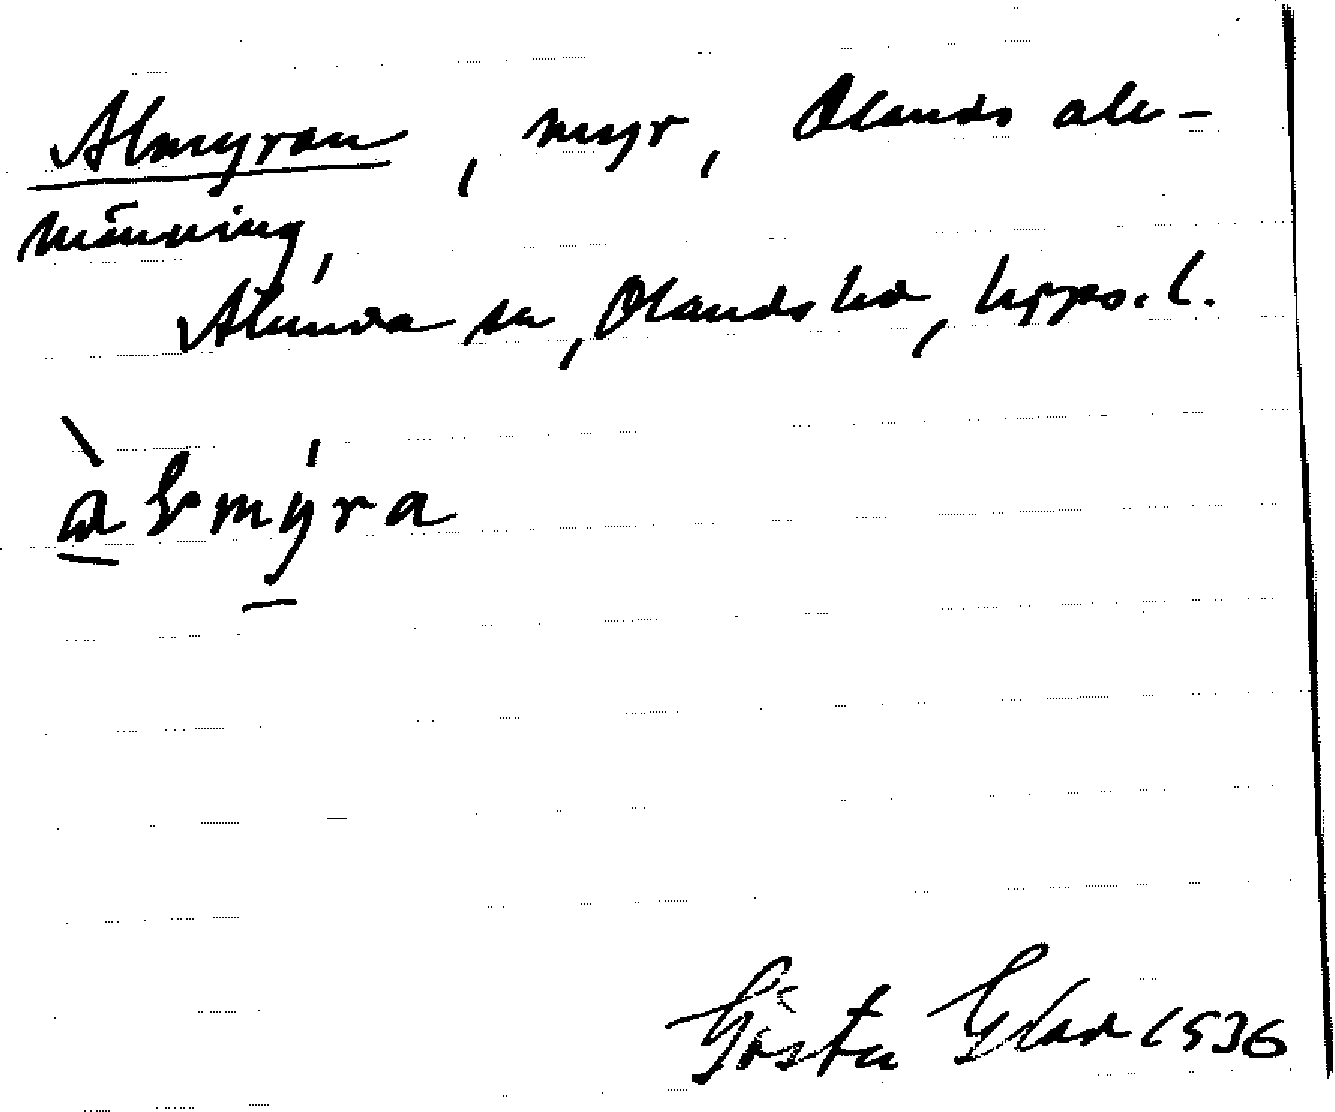 Almyran, myr, Olands all-
männing,
Alunda sn, Olands hd, Upps. l.
àlmýra
Gösta Elad 1936